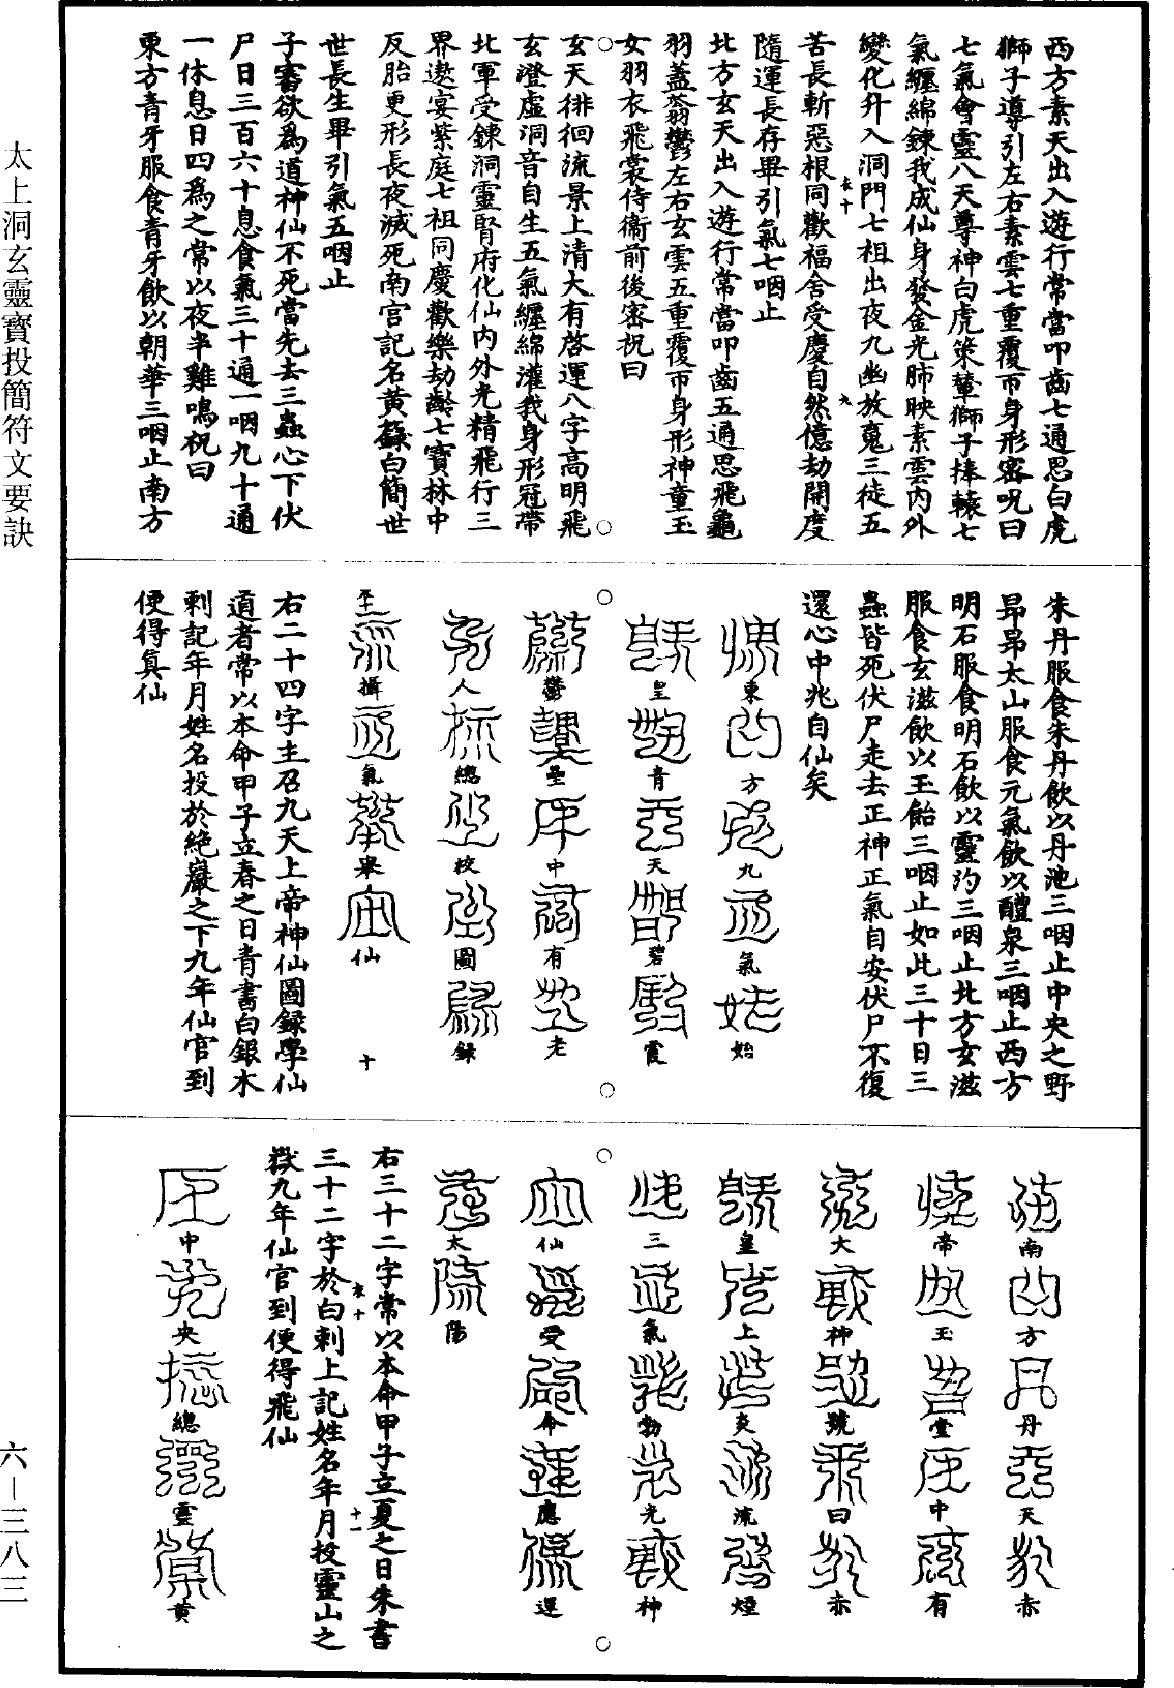 太上洞玄靈寶投簡符文要訣
西方素天出入遊行常當叩齒七通思白虎
獅子導引左右素雲七重覆帀身形密呪曰
七氣會靈八天尊神白虎策輦獅子捧轅七
氣纏綿鍊我成仙身發金光肺映素雲內外
變化升入洞門七祖出夜九幽放寬三徒五
苦長斬惡根同歡福舍受慶自然億劫開度
隨運長存畢引氣七咽止
北方玄天出入遊行常當叩齒五通思飛龜
羽蓋蓊鬱左右玄雲五重覆帀身形神童玉
女羽衣飛裳侍衛前後密祝曰
玄天徘徊流景上清大有啓運八字高明飛
玄澄虛洞音自生五氣纏綿灌我身形冠帶
北軍受鍊洞靈腎府化仙內外光精飛行三
界遨宴紫庭七祖同慶歡樂劫齡七寶林中
反胎更形長夜滅死南宮記名黃籙白簡世
世長生畢引氣五咽止
子審欲爲道神仙不死當先去三蟲心下伏
尸日三百六十息食氣三十通一咽九十通
一休息日四爲之常以夜半雞鳴祝曰
東方青牙服食青牙飲以朝華三咽止南方
朱丹服食朱丹飲以丹池三咽止中央之野
昂昂太山服食元氣飲以醴泉三咽止西方
明石服食明石飲以靈汋三咽止北方玄滋
服食玄滋飲以玉飴三咽止如此三十日三
蟲皆死伏尸走去正神正氣自安伏尸不復
還心中兆自仙矣
東方九氣始
皇青天碧霞
鬱壘中有老
人總校圖錄
攝氣舉仙
右二十四字主召九天上帝神仙圖錄學仙
道者常以本命甲子立春之日青書白銀木
刺記年月姓名投於絶巖之下九年仙官到
便得真仙
南方丹天赤
帝玉堂中有
大神號曰赤
皇上炎流煙
三氣勃光神
仙受命應運
太陽
右三十二字常以本命甲子立夏之日朱書
三十二字於白刺上記姓名年月投靈山之
嶽九年仙官到便得飛仙
中央總靈黃
六—三八三